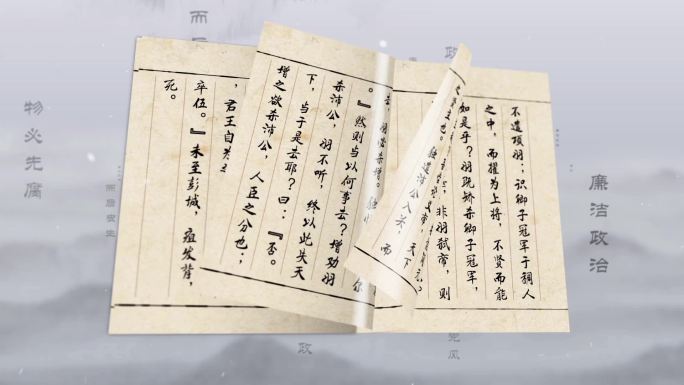 不遣项羽;识卿子冠军于稠人
之中,而擢为上将,不贤而能
如是乎?羽既矫杀卿子冠军,
非羽弑帝,则
遣沛公入关,
天下
而
羽必杀增。独
。『然则当以何事去?增劝羽
杀沛公,羽不听,终以此失天
下,当于是去耶?曰:『否。
增之欲杀沛公,人臣之分也;
,君王自为
卒伍。』未至彭城,疽发背,
死。
廉洁政治
物必先腐
而
政
政
党风